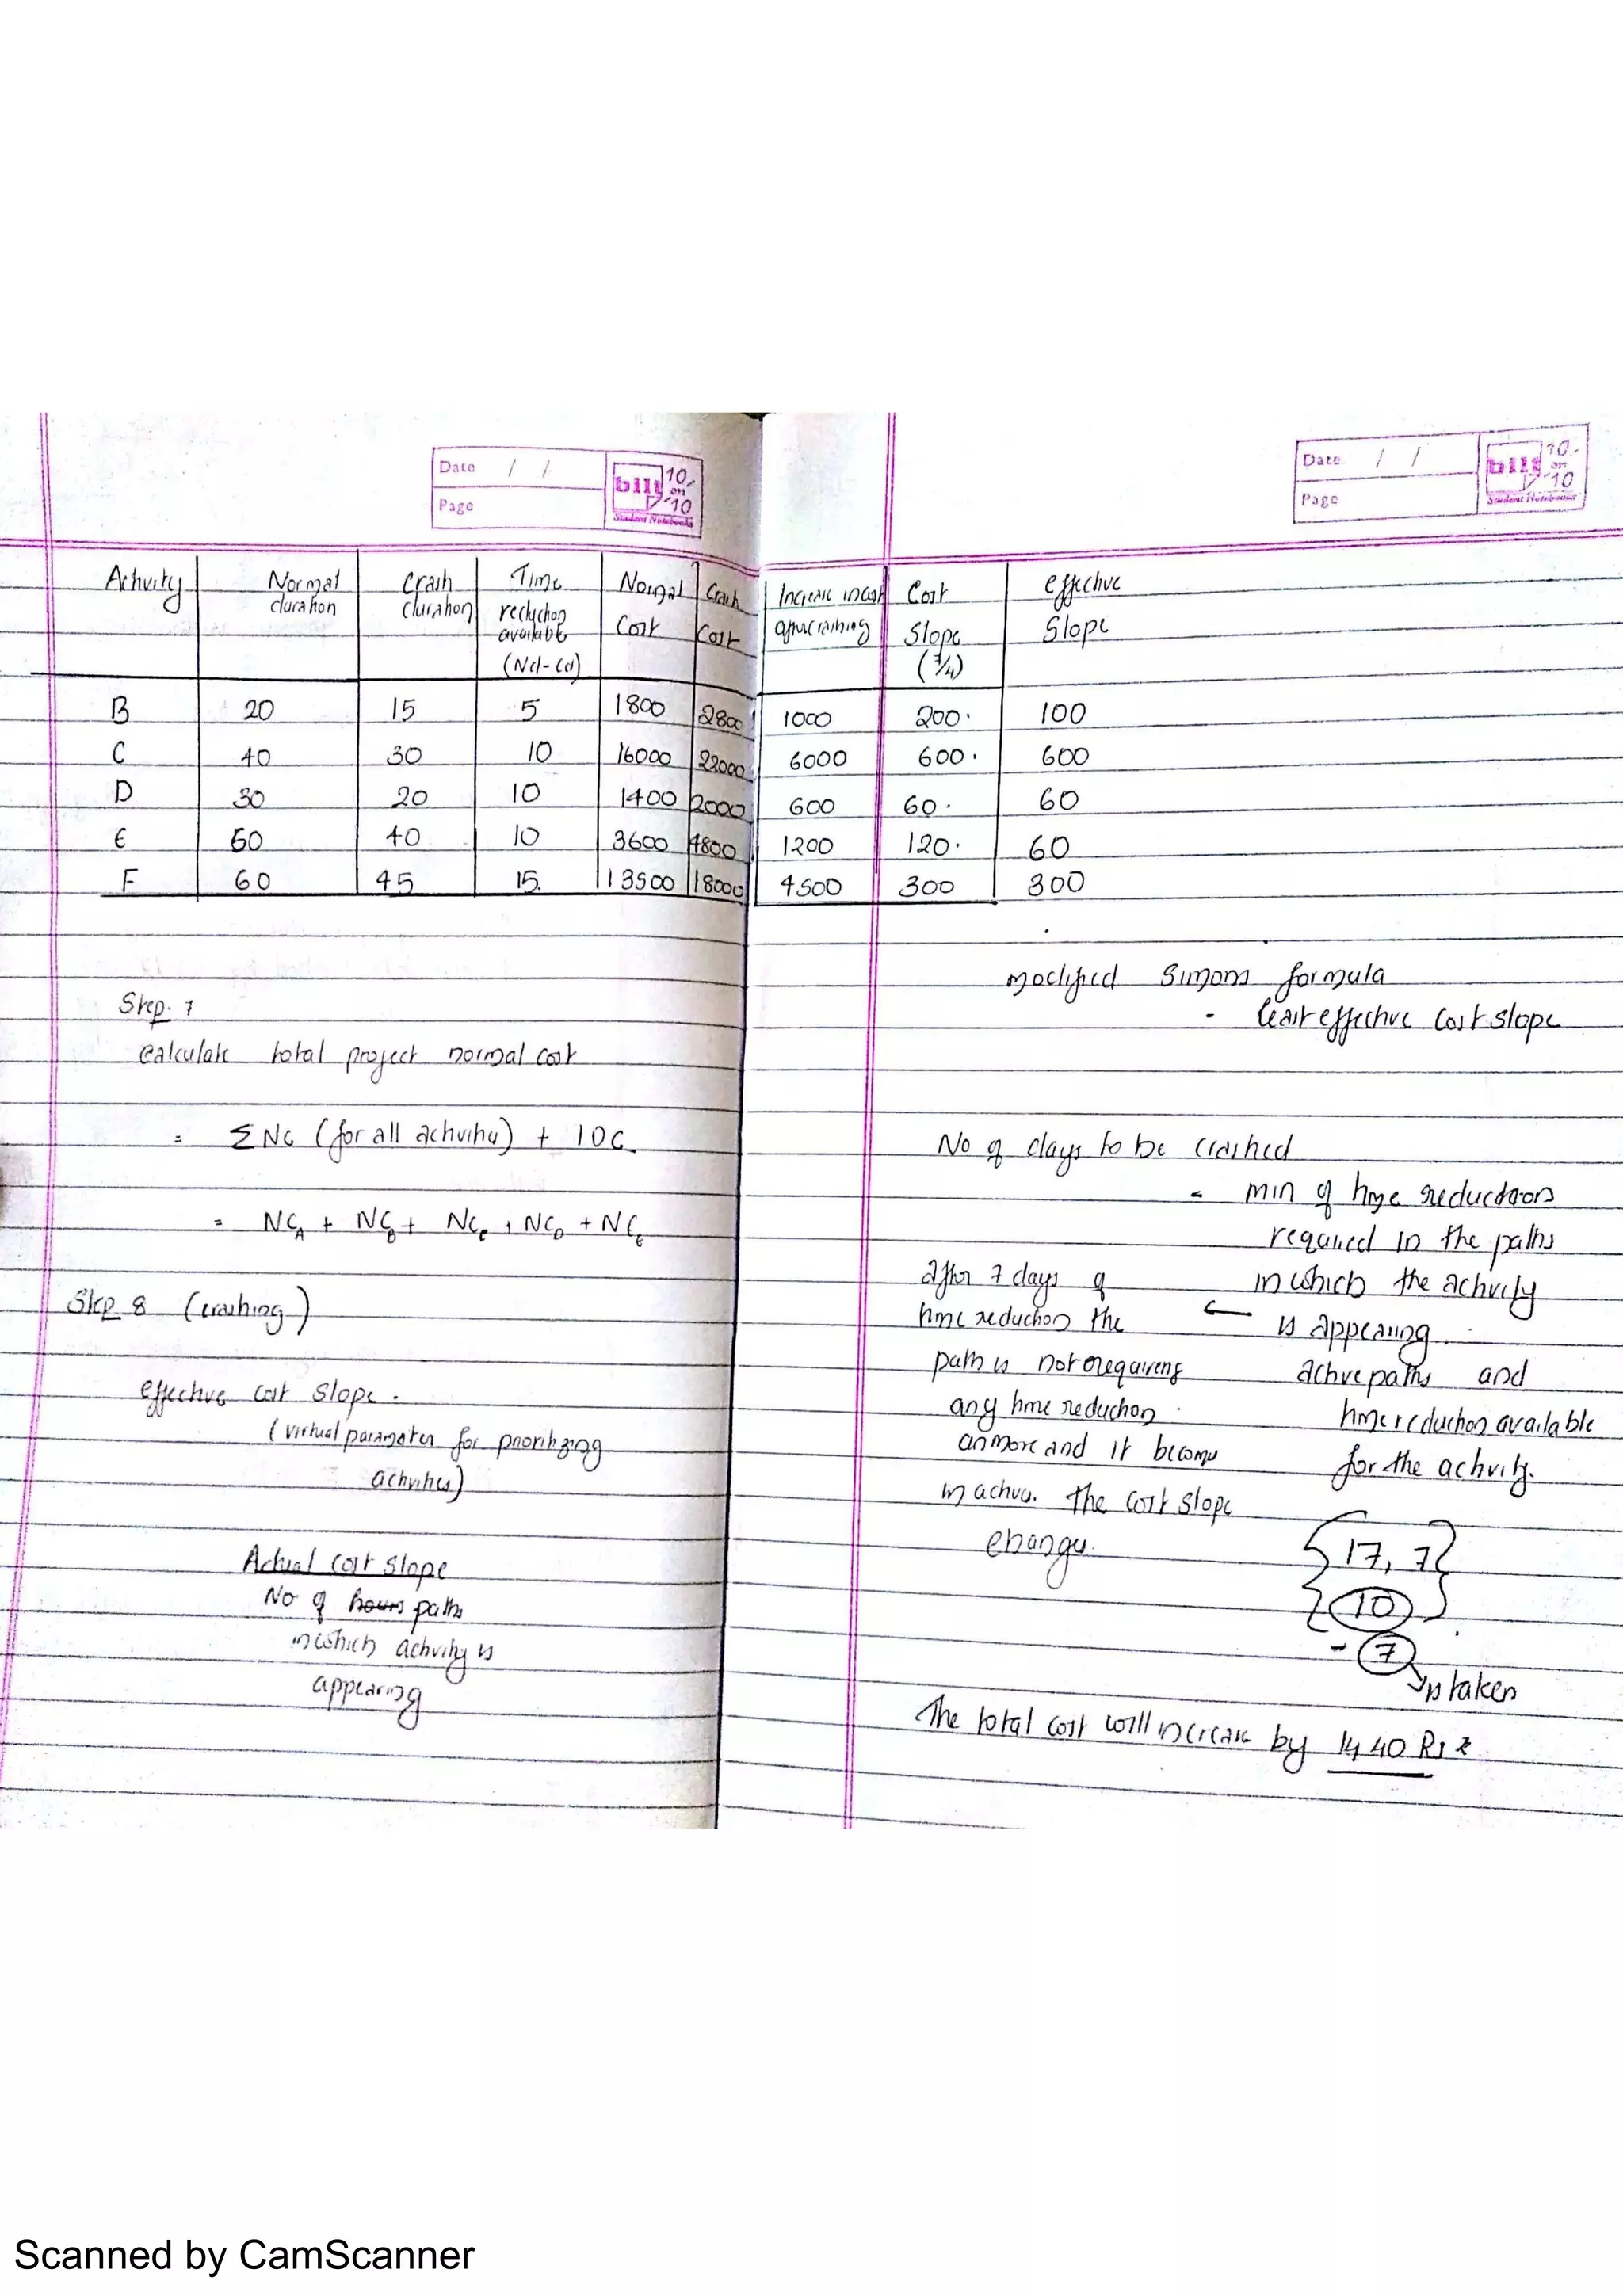 Date / /
Page
bilt 10 on 10
Student Notebooks
Date / /
Page
bilt 10 on 10
Student Notebooks
Activity | Normal duration | Crash duration | Time reduction available (Nd-Cd) | Normal Cost | Crash Cost | Increase in Cost after crashing | Cost Slope (7/4) | effective Slope
B 20 15 5 1800 2800 1000 200. 100
C 40 30 10 16000 22000 6000 600. 600
D 30 20 10 1400 2000 600 60. 60
E 50 40 10 3600 4800 1200 120. 60
F 60 45 15. 13500 18000 4500 300 300
Step. 7
Calculate total project normal cost
= ΣNC (for all activities) + IDC.
= NCA + NCB + NCC + NCD + NCE
Step 8 (crashing)
effective cost slope.
(virtual parameter for prioritizing
activities)
Actual cost slope
No of hours paths
in which activity is
appearing
modified Simons formula
- least effective cost slope
No of days to be crashed
= min of time reduction
required in the paths
in which the activity
← is appearing.
active paths and
time reduction available
for the activity.
after 7 days of
time reduction the
path is not requiring
any time reduction
anmore and it becomes
inactive. The cost slope
changes.
{17, 7}
{10}
- 7
is taken
The total cost will increase by 1440 Rs
Scanned by CamScanner